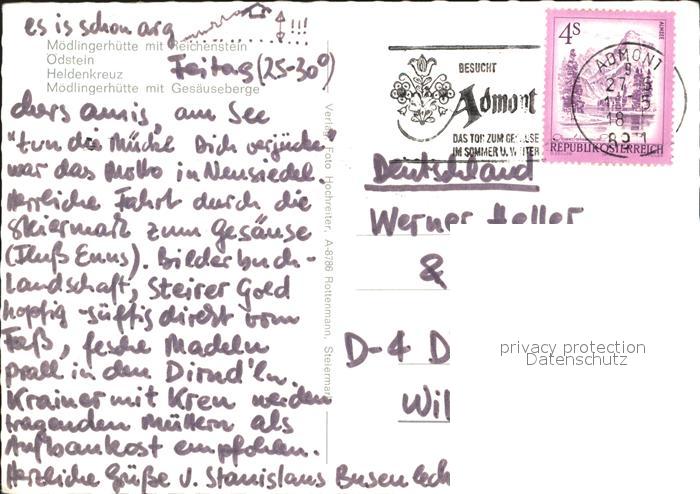 es is schon arg !!!
Mödlingerhütte mit Reichenstein
Ödstein
Heldenkreuz
Mödlingerhütte mit Gesäuseberge
Freitag (25-30°)
chers amis, am See
"tun die Mücke Dich verjücken"
war das Motto in Neusiedel.
Herrliche Fahrt durch die
Steiermark zum Gesäuse
(Fluß Enns). Bilderbuch-
Landschaft, Steirer Gold
hopfig-süffig direkt vom
Faß, fesche Madeln
prall in den Dirnd'ln.
Krainer mit Kren werden
tragenden Müttern als
Aufbaukost empfohlen.
Herzliche Grüße v. Stanislaus Busenlech
Verlag Foto Hochreiter, A-8786 Rottenmann, Steiermark
BESUCHT
Admont
DAS TOR ZUM GESÄUSE
IM SOMMER U. WINTER
4S
ALMSEE
REPUBLIK ÖSTERREICH
ADMONT
27
18
8911
Deutschland
Werner
&
D-4 D
Wil
privacy protection
Datenschutz